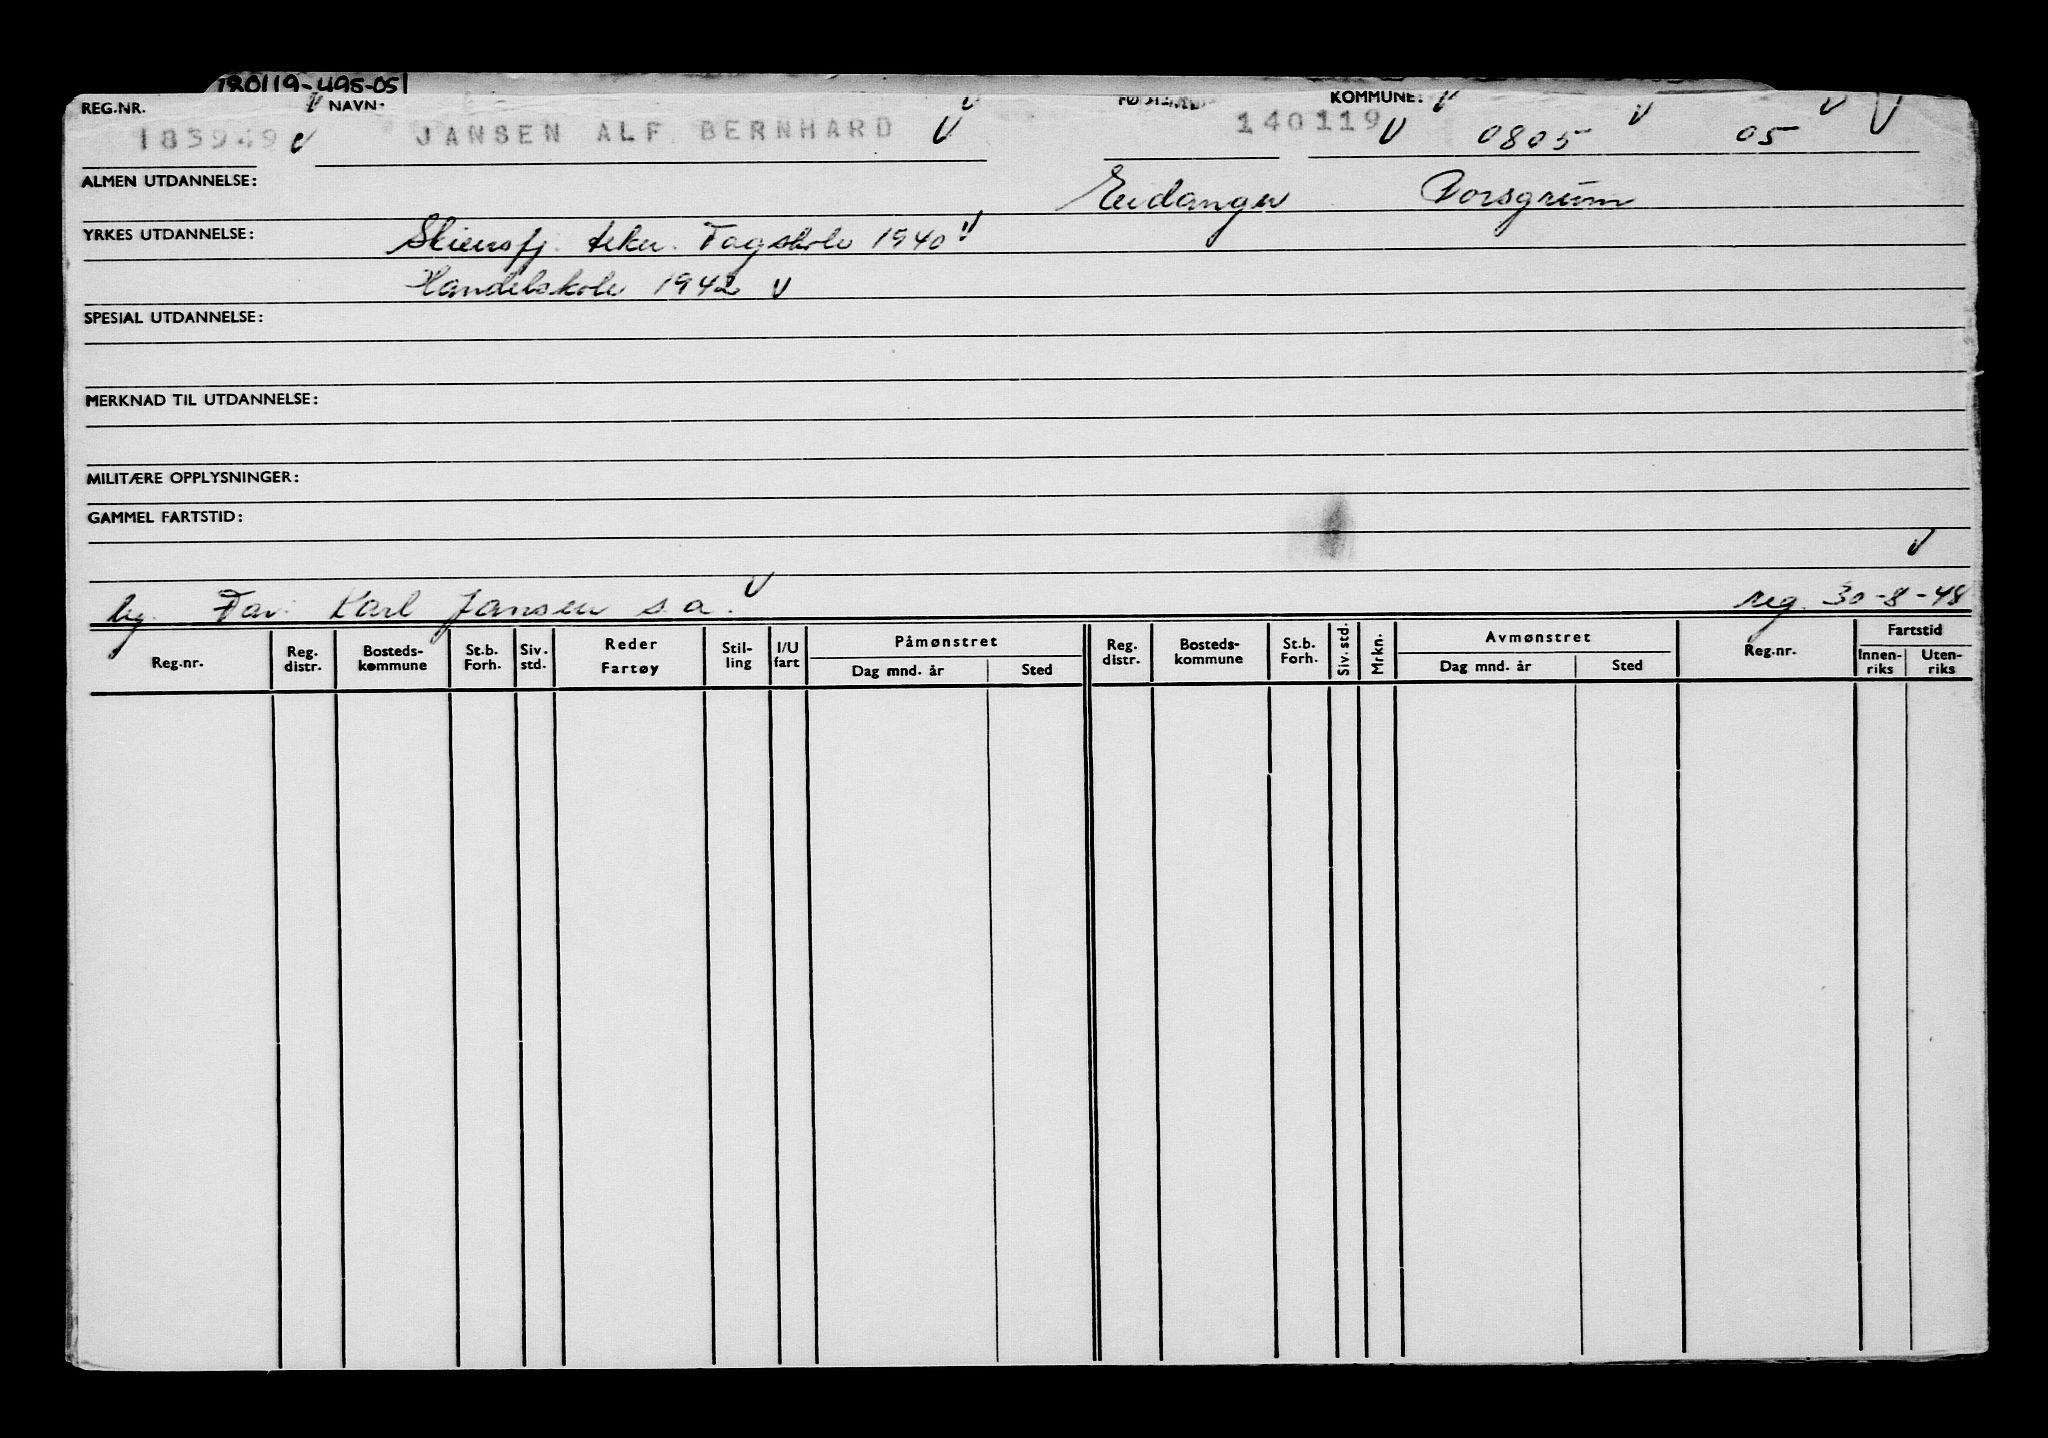 180119-495-051
REG.NR. NAVN. KOMMUNE:
183949 JANSEN ALF BERNHARD 140119 0805 05
ALMEN UTDANNELSE: Eidanger Porsgrunn
YRKES UTDANNELSE: Skiensfj. tekn. Fagskole 1940
Handelskole 1942
SPESIAL UTDANNELSE:
MERKNAD TIL UTDANNELSE:
MILITÆRE OPPLYSNINGER:
GAMMEL FARTSTID:
Far Karl Jansen s.a. reg. 30-8-48
Reg.nr. Reg. distr. Bosteds-kommune St.b. Forh. Siv. std. Reder Fartøy Stil-ling I/U fart Påmønstret Dag mnd. år Sted Reg. distr. Bosteds-kommune St.b. Forh. Siv. std. Mrkn. Avmønstret Dag mnd. år Sted Reg.nr. Fartstid Innen-riks Uten-riks